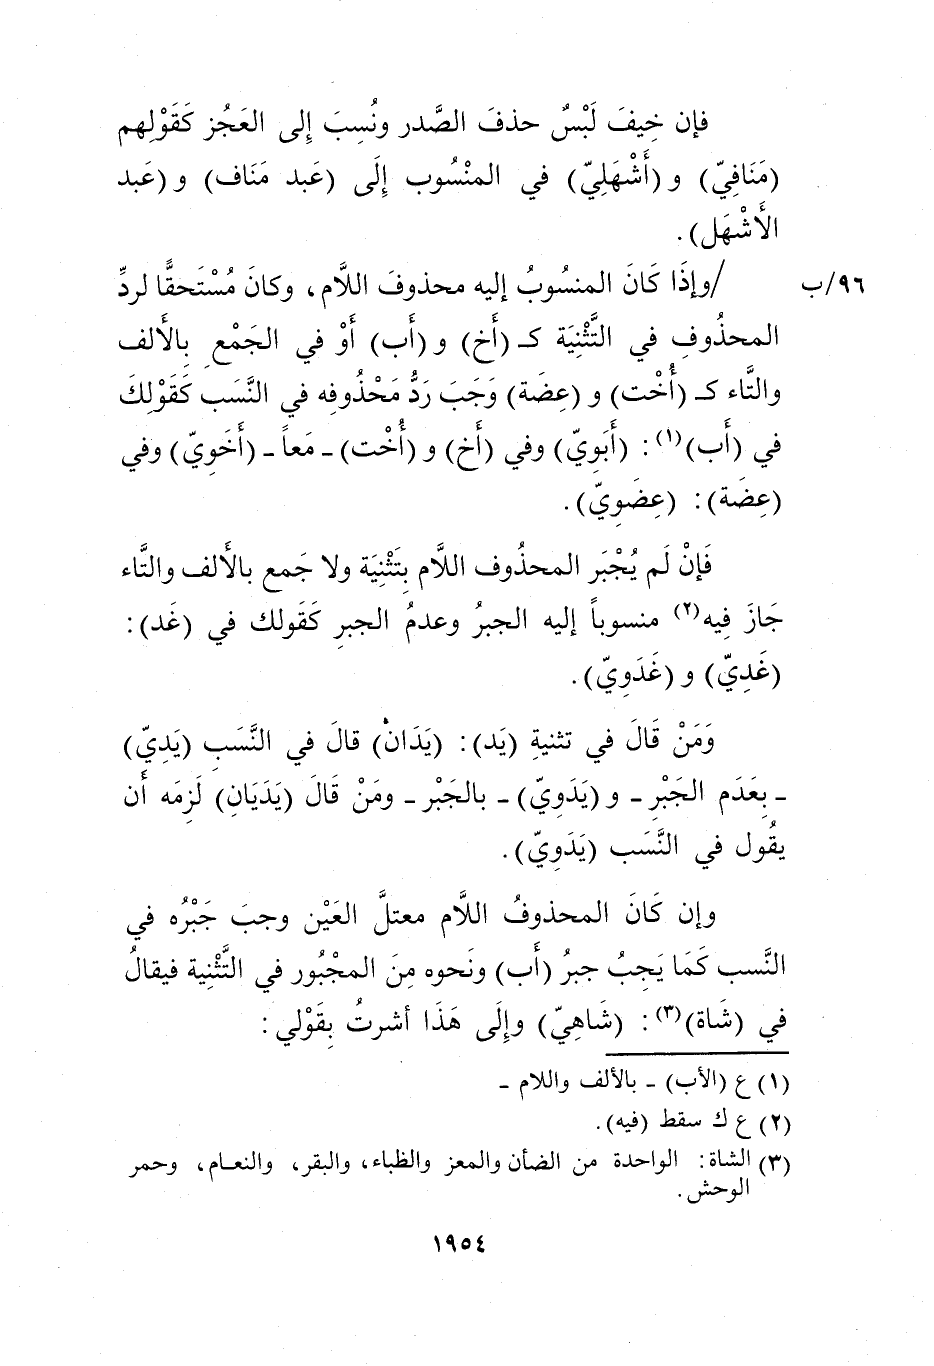 فإن خِيفَ لَبْسٌ حذفَ الصَّدر ونُسِبَ إِلى العَجُز كَقَوْلِهم
(مَنَافِيّ) و (أَشْهَلِيّ) في المنْسُوب إِلَى (عَبد مَنَاف) و (عَبد
الأَشْهَل).
٩٦/ب /وإذَا كَانَ المنسُوبُ إليه محذوفَ اللَّام، وكانَ مُسْتَحقًّا لردِّ
المحذُوفِ في التَّثْنِيَة كـ (أَخ) و (أَب) أَوْ في الجَمْعِ بِالأَلف
والتَّاء كـ (أُخْت) و (عِضَة) وَجَبَ رَدُّ مَحْذُوفِه في النَّسَب كَقَوْلِكَ
في (أَب)(١): (أَبَوِيّ) وفي (أَخ) و (أُخْت) ـ مَعاً ـ (أَخَوِيّ) وفي
(عِضَة): (عِضَوِيّ).
فَإنْ لَم يُجْبَر المحذُوف اللَّام بِتَثْنِيَة ولا جَمع بالأَلف والتَّاء
جَازَ فِيه(٢) منسوباً إليه الجبرُ وعدمُ الجبرِ كَقَولك في (غَد):
(غَدِيّ) و (غَدَوِيّ).
وَمَنْ قَالَ في تثنيةِ (يَد): (يَدَان) قالَ في النَّسَبِ (يَدِيّ)
ـ بِعَدَم الجَبْرِ ـ و (يَدَوِيّ) ـ بالجَبْر ـ ومَنْ قَالَ (يَدَيَانِ) لَزِمَه أَن
يقُول في النَّسَب (يَدَوِيّ).
وإن كَانَ المحذوفُ اللَّام معتلَّ العَيْن وجبَ جَبْرُه في
النَّسب كَمَا يَجِبُ جبرُ (أَب) ونَحوه مِنَ المجْبُور في التَّثْنِية فيقالُ
في (شَاة)(٣): (شَاهِيّ) وإِلَى هَذَا أشرتُ بِقَوْلي:
(١) ع (الأب) ـ بالألف واللام ـ
(٢) ع ك سقط (فيه).
(٣) الشاة: الواحدة من الضأن والمعز والظباء، والبقر، والنعـام، وحمر
الوحش.
١٩٥٤